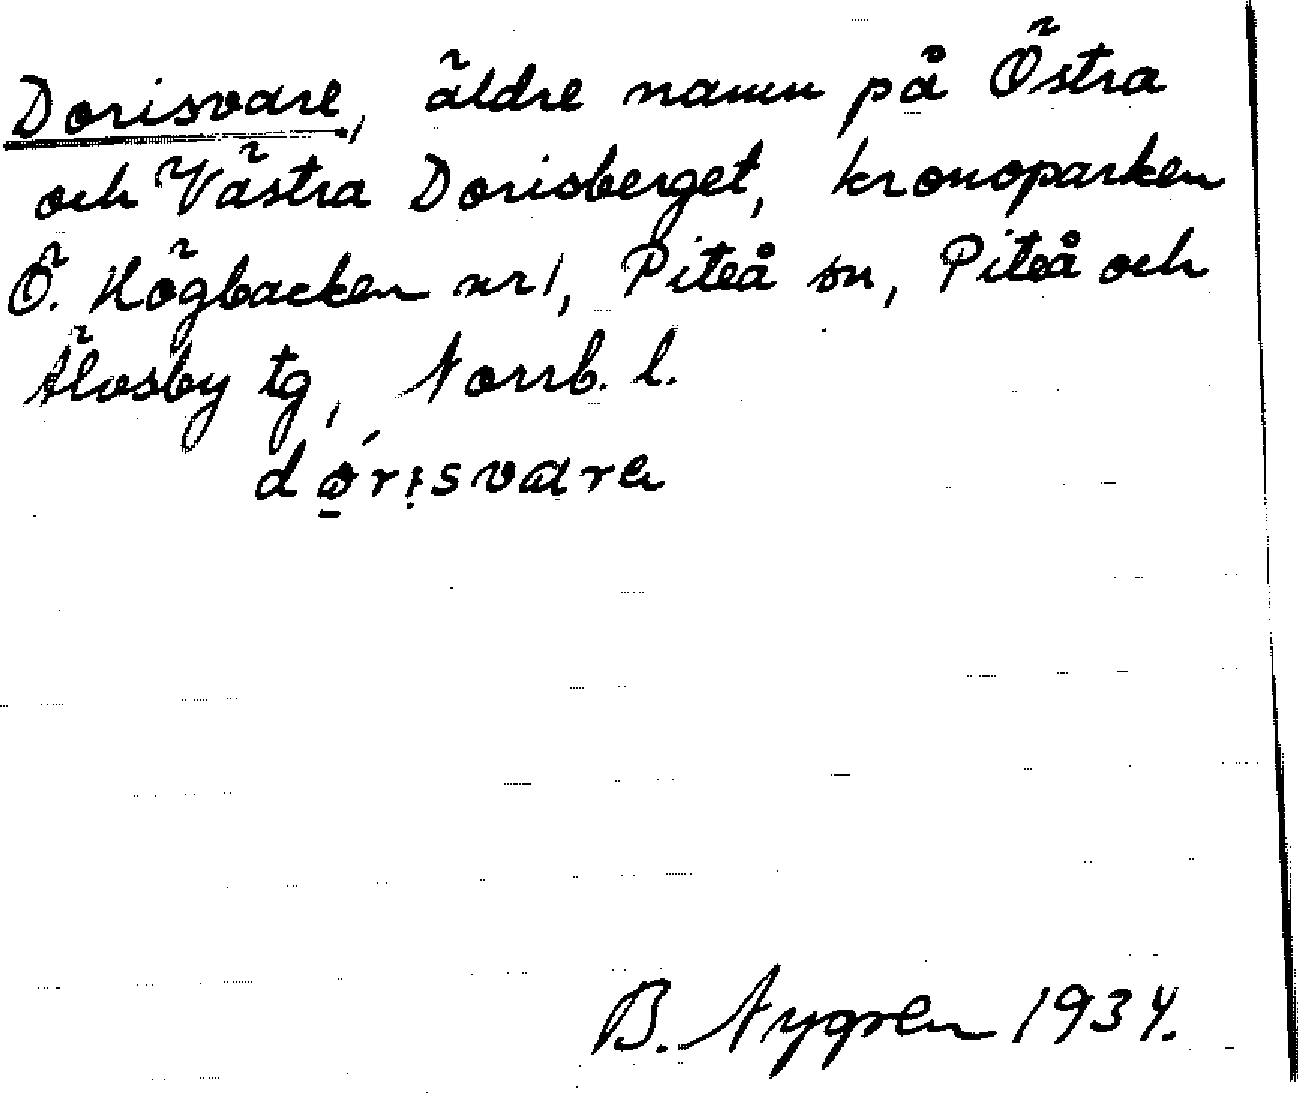 Dorisvare, äldre namn på Östra
och Västra Dorisberget, kronoparken
Ö. Högbacken nr 1, Piteå sn, Piteå och
Älvsby tg, Norrb. l.
dǿ̱rịsvarɐ
B. Nygren 1934.